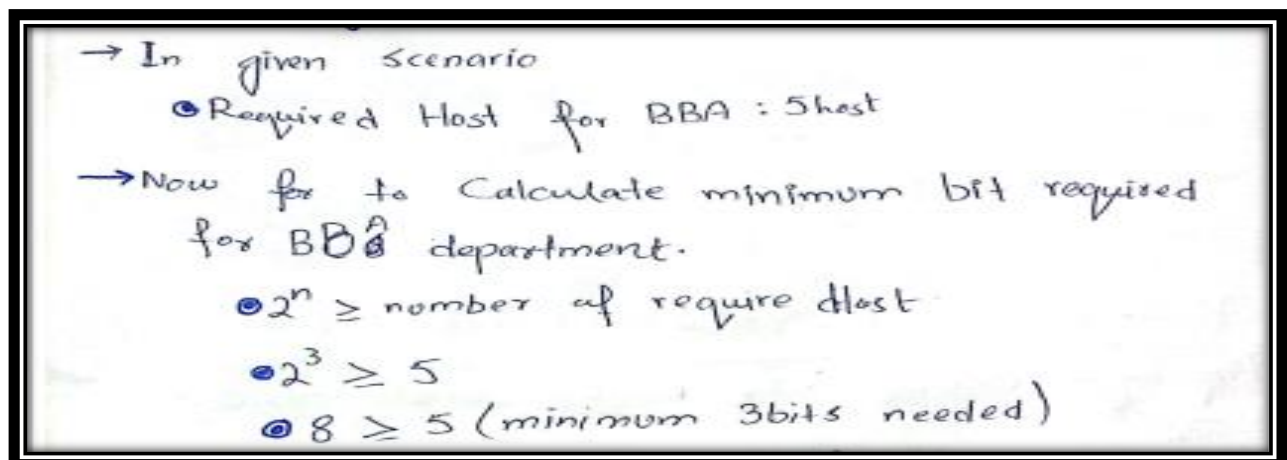 → In given scenario
● Required Host for BBA : 5host
→ Now for to Calculate minimum bit required
for BBA department.
● 2ⁿ ≥ number of require Host
● 2³ ≥ 5
● 8 ≥ 5 (minimum 3bits needed)